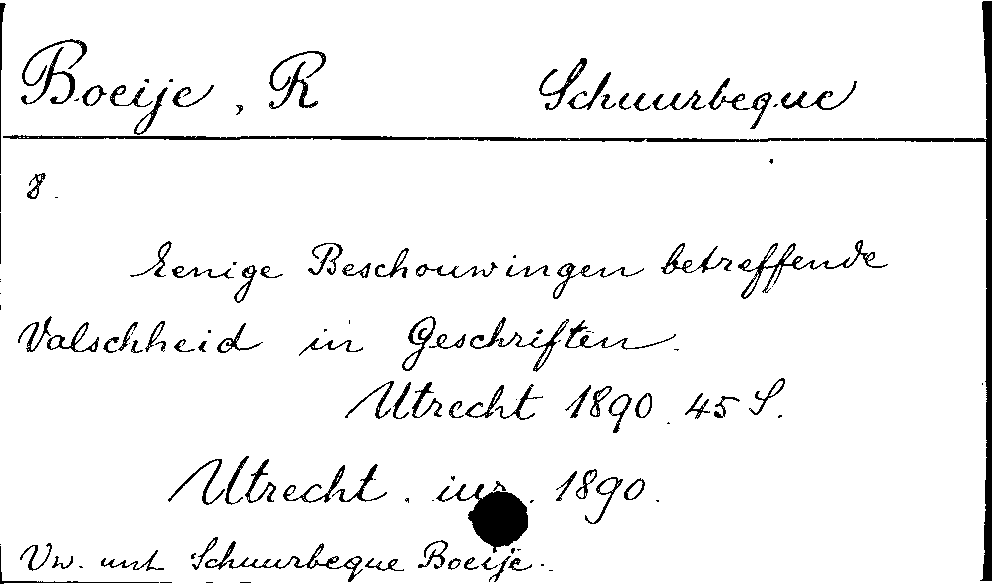 Boeije, R Schuurbeque
8.
Eenige Beschouwingen betreffende
Valschheid in Geschriften.
Utrecht 1890. 45 S.
Utrecht. iur. 1890.
Vw. unt Schuurbeque Boeije.